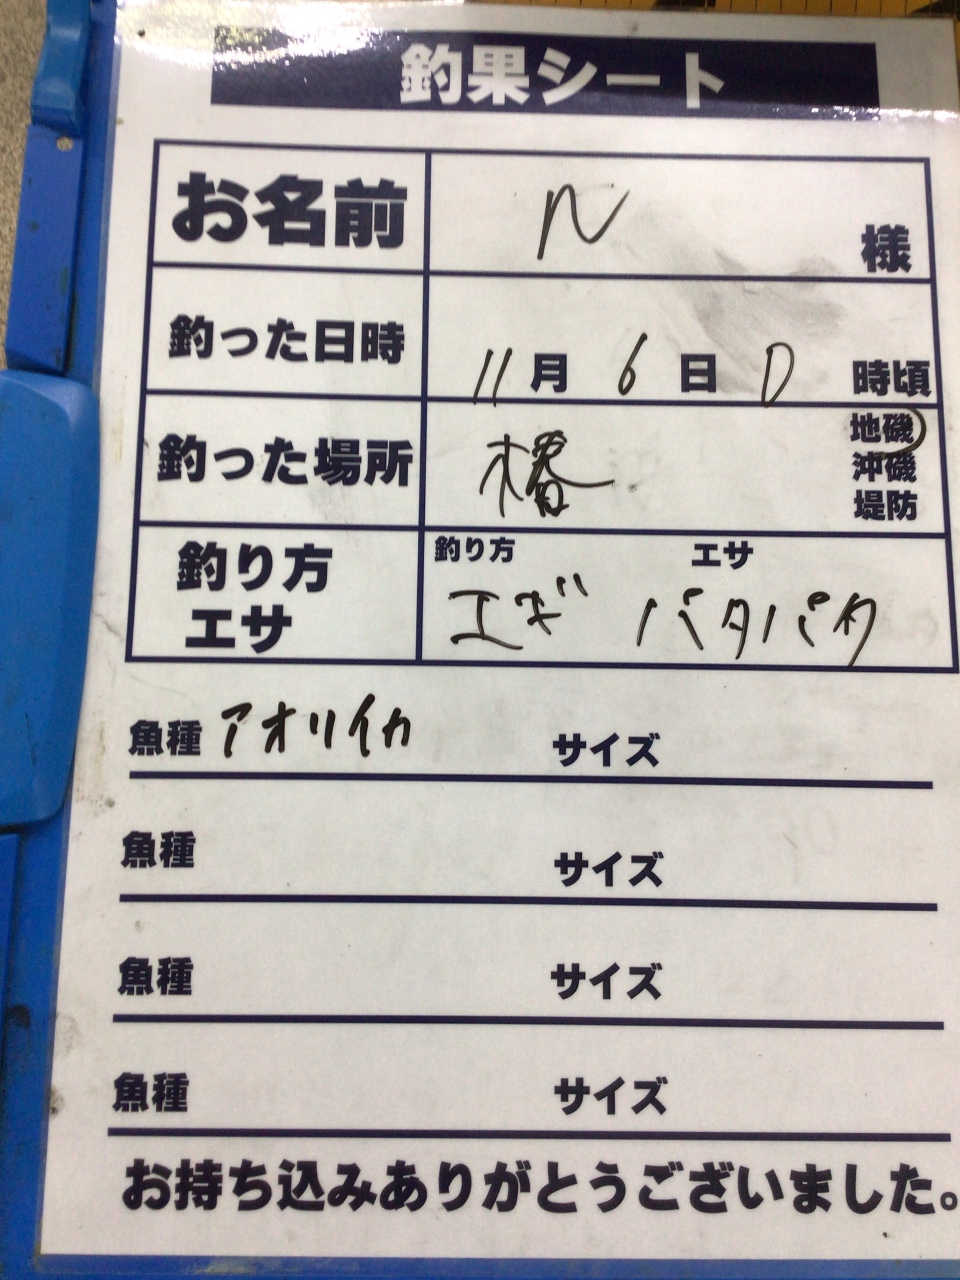 釣果シート
お名前 N 様
釣った日時 11月 6日 0 時頃
釣った場所 椿 地磯
沖磯
堤防
釣り方 エサ 釣り方 エサ
エギ パタパタ
魚種 アオリイカ サイズ
魚種 サイズ
魚種 サイズ
魚種 サイズ
お持ち込みありがとうございました。